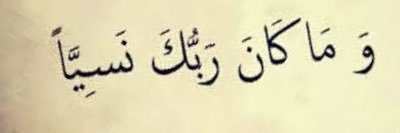 وَ مَا كَانَ رَبُّكَ نَسِيَّاً